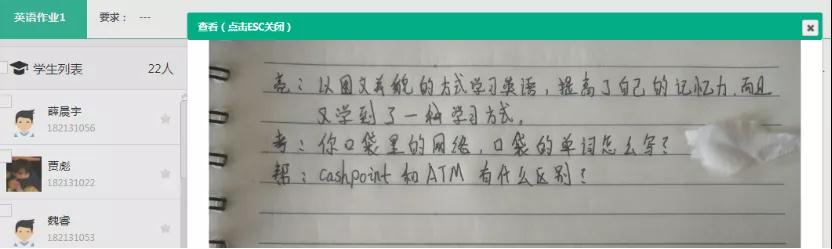 英语作业1
要求： ---
查看（点击ESC关闭）
学生列表 22人
薛晨宇
182131056
贾彪
182131022
魏睿
182131053
亮：以图文并貌的方式学习英语，提高了自己的记忆力，而且
又学到了一种学习方式。
考：你口袋里的网络，口袋的单词怎么写？
帮：cashpoint 和 ATM 有什么区别？